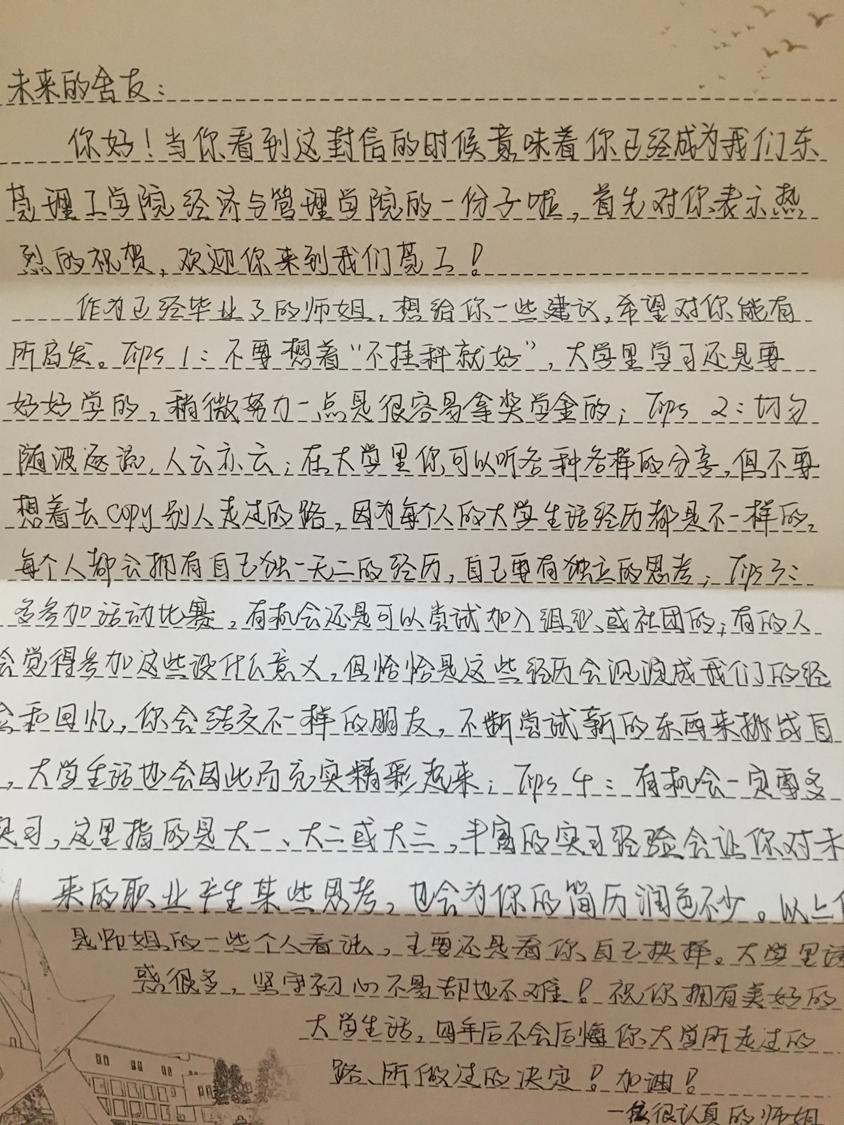 未来的舍友：
你好！当你看到这封信的时候意味着你已经成为我们东
莞理工学院经济与管理学院的一份子啦，首先对你表示热
烈的祝贺，欢迎你来到我们莞工！
作为已经毕业了的师姐，想给你一些建议，希望对你能有
所启发。Tips 1：不要想着“不挂科就好”，大学里学习还是要
好好学的，稍微努力一点是很容易拿奖学金的；Tips 2：切勿
随波逐流，人云亦云；在大学里你可以听各种各样的分享，但不要
想着去copy别人走过的路，因为每个人的大学生活经历都是不一样的，
每个人都会拥有自己独一无二的经历，自己要有独立的思考；Tips3：
多参加活动比赛，有机会还是可以尝试加入组织或社团的；有的人
会觉得参加这些没什么意义，但恰恰是这些经历会沉淀成我们的经
和回忆，你会结交不一样的朋友，不断尝试新的东西来挑战自
，大学生活也会因此而充实精彩起来；Tips 4：有机会一定要多
实习，这里指的是大一、大二或大三，丰富的实习经验会让你对未
来的职业产生某些思考，也会为你的简历润色不少。以上
是师姐的一些个人看法，主要还是看你自己抉择。大学里诱
惑很多，坚守初心不易却也不难！祝你拥有美好的
大学生活，四年后不会后悔你大学所走过的
路、所做过的决定！加油！
很认真的师姐